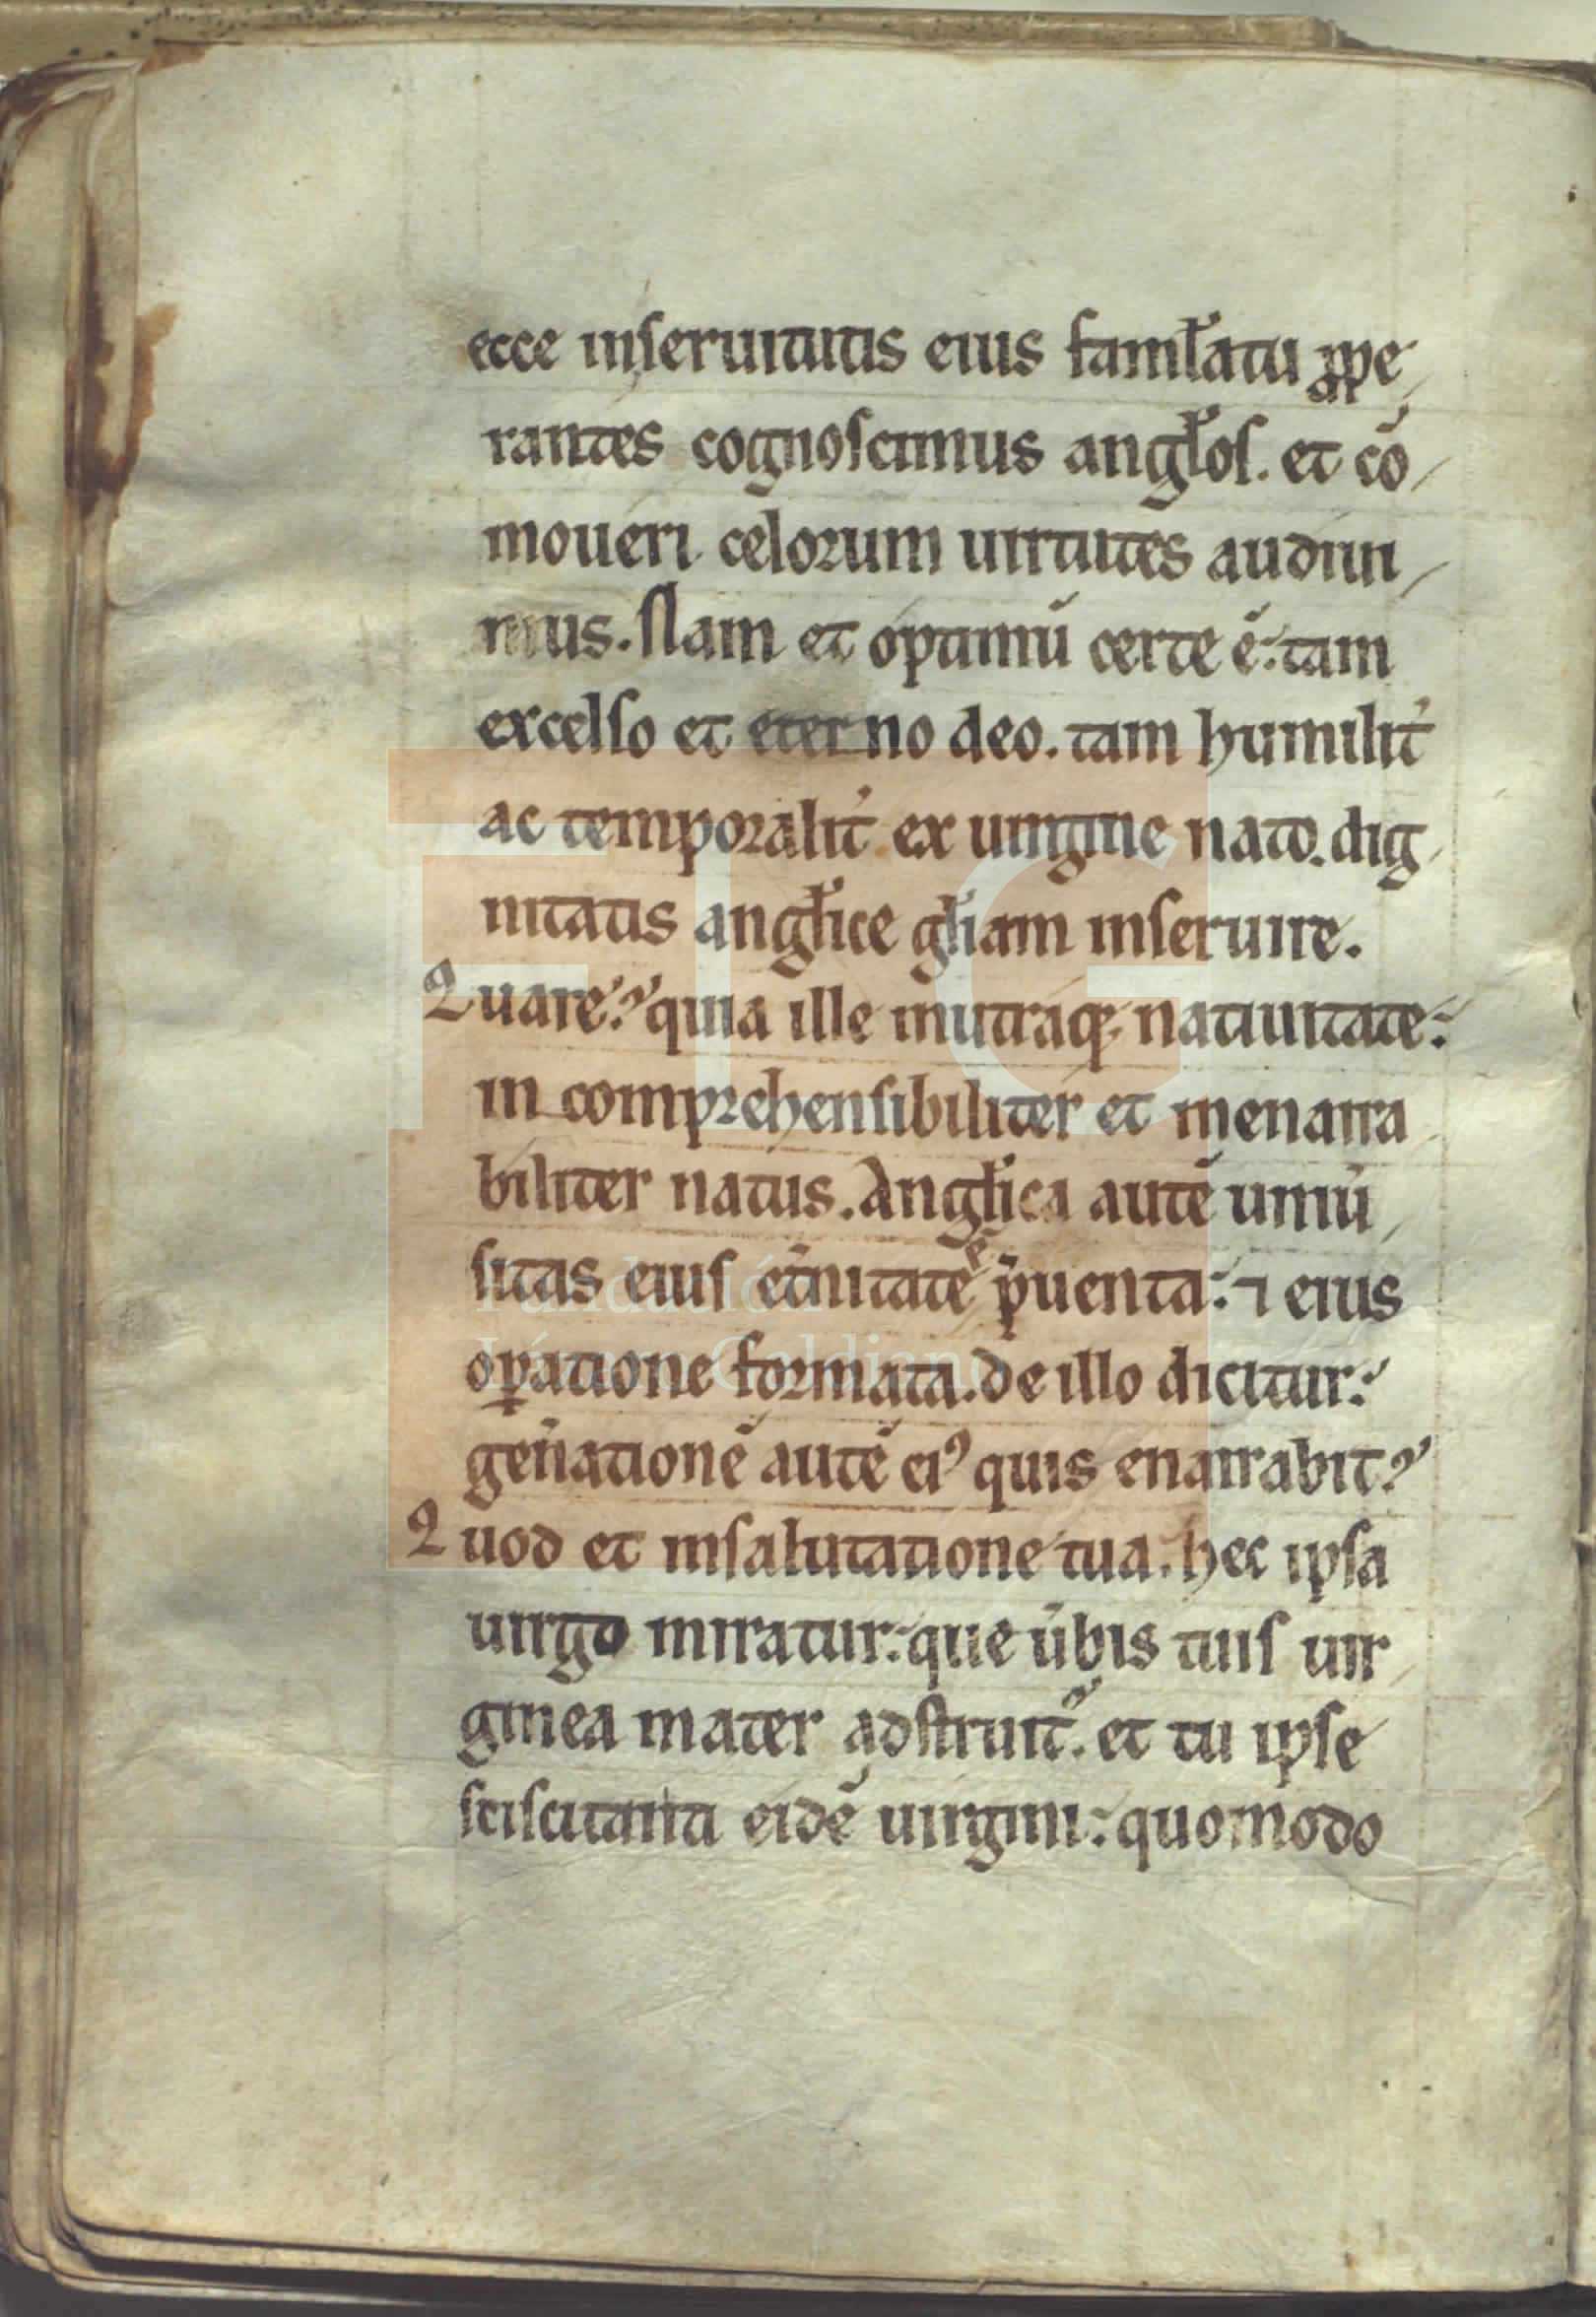 ecce inseruitutis eius faml̃atu ꝓpe
rantes cognoscimus angl̃os. et cō
moueri celorum uirtutes audiui
mus. Nam et optimū certe ē: tam
excelso et eterno deo. tam humilit̾
ac temporalit̾ ex uirgine nato. dig
nitatis angl̃ice gl̃iam inseruire.
Quare? quia ille inutraq; natiuitate:
in comprehensibiliter et inenarra
biliter natus. Angl̃ica autē uniu̾
sitas eius et̾nitate p̾uenta: ⁊ eius
oꝑatione formata. de illo dicitur:
gen̾ationē autē eiꝰ quis enarrabit?
Quod et insalutatione tua. hec ipsa
uirgo miratur: que u̾bis tuis uir
ginea mater adstruit᷑. et tu ipse
sciscitanti eidē uirgini: quomodo